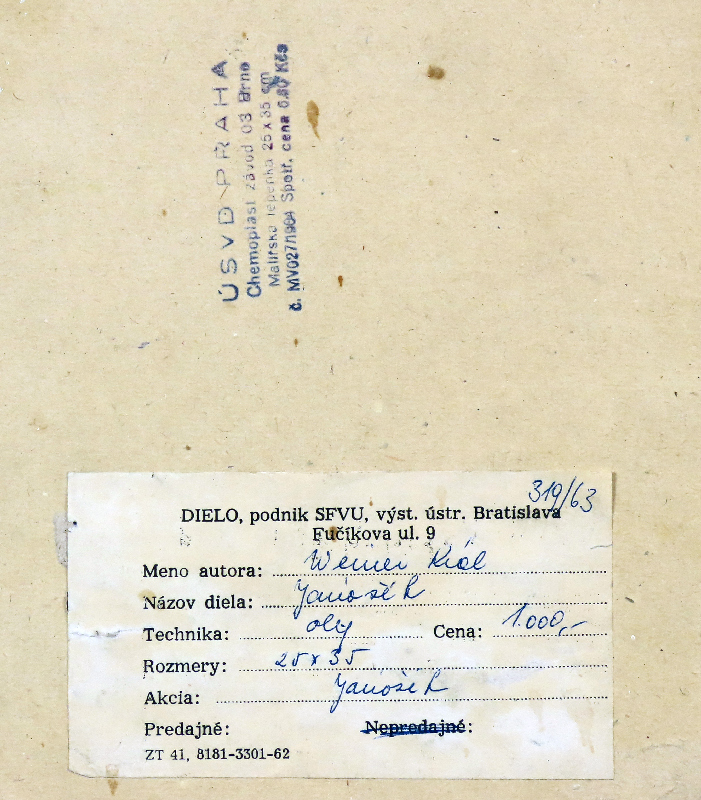 ÚSVD PRAHA
Chemoplast závod 03 Brno
Malířská lepenka 25 x 35 cm
č. MV027/1964 Spotř. cena 0.80 Kčs
319/63
DIELO, podnik SFVU, výst. ústr. Bratislava
Fučíkova ul. 9
Meno autora: Werner Král
Názov diela: Jánošík
Technika: olej Cena: 1.000,-
Rozmery: 25 x 35
Akcia: Jánošík
Predajné: Nepredajné:
ZT 41, 8181-3301-62